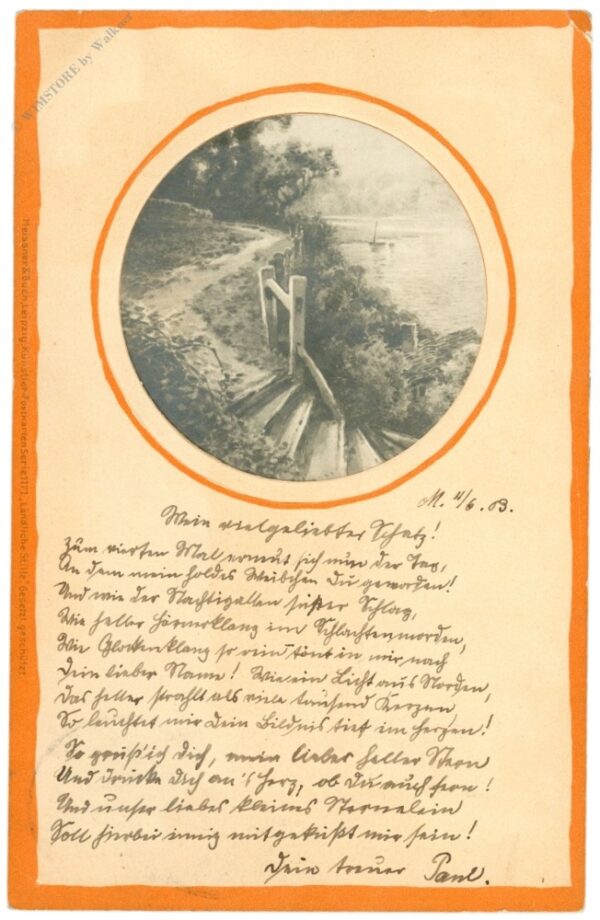 © WIMSTORE by Walkner
Meissner & Buch, Leipzig, Künstler-Postkarten Serie 1171. „Ländliche Stille" Gesetzl. geschützt.
M. 4/6. 03.
Mein vielgeliebter Schatz!
Zum vierten Mal erneut sich nun der Tag,
An dem mein holdes Weibchen Du geworden!
Und wie der Nachtigallen süßer Schlag,
Wie heller Hörnerklang im Schlachtenmorden,
Wie Glockenklang so rein tönt in mir nach
Dein lieber Name! Wie ein Licht aus Norden,
Das heller strahlt als viele tausend Kerzen
So leuchtet mir Dein Bildnis tief im Herzen!
So grüß' ich Dich, mein lieber heller Stern
Und drücke Dich an's Herz, ob Du auch fern!
Und unser liebes kleines Sternelein
Soll hierbei innig mitgeküßt mir sein!
Dein treuer Paul.